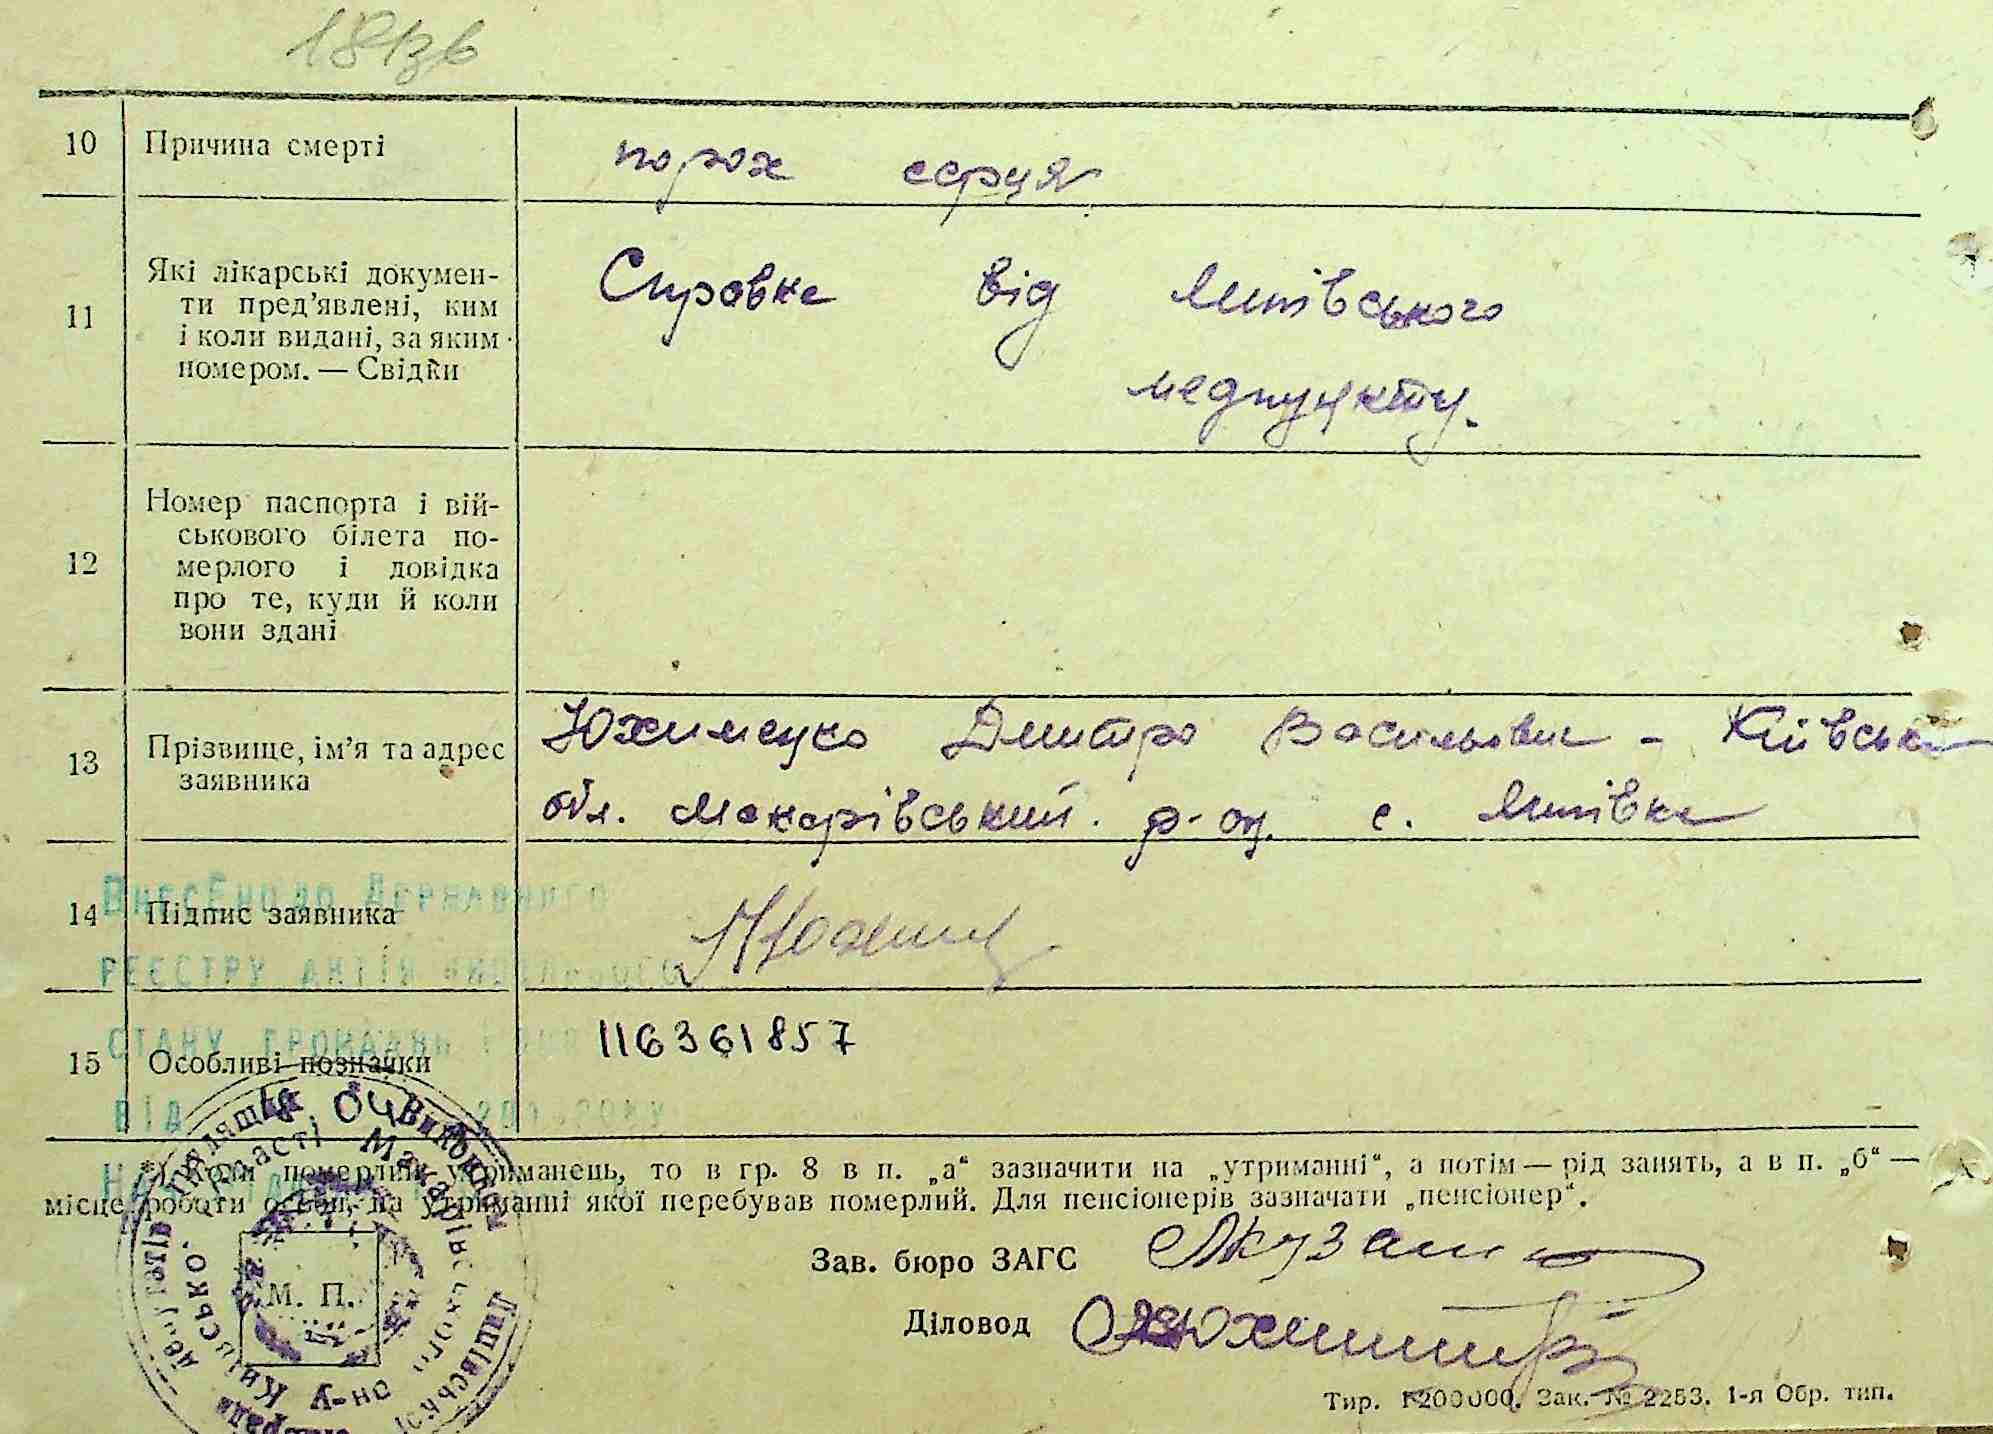 10 Причина смерті порок серця
11 Які лікарські докумен-
ти пред’явлені, ким
і коли видані, за яким
номером. — Свідки
Справка від Липівського
медпункту.
12 Номер паспорта і вій-
ськового білета по-
мерлого і довідка
про те, куди й коли
вони здані
13 Прізвище, ім’я та адрес
заявника
Юхименко Дмитро Васильович – Київська
обл. Макарівський р-он. с. Липівка
14 Підпис заявника
15 Особливі позначки 116361857
Внесено до Державного
реєстру актів цивільного
стану громадян
від 18.04 201 року
*) Коли померлий утриманець, то в гр. 8 в п. „а“ зазначити на „утриманні“, а потім — рід занять, а в п. „б“ —
місце роботи особи, на утриманні якої перебував померлий. Для пенсіонерів зазначати „пенсіонер“.
Зав. бюро ЗАГС
М. П.
Діловод
Тир. 1200000. Зак. № 2253. 1-я Обр. тип.